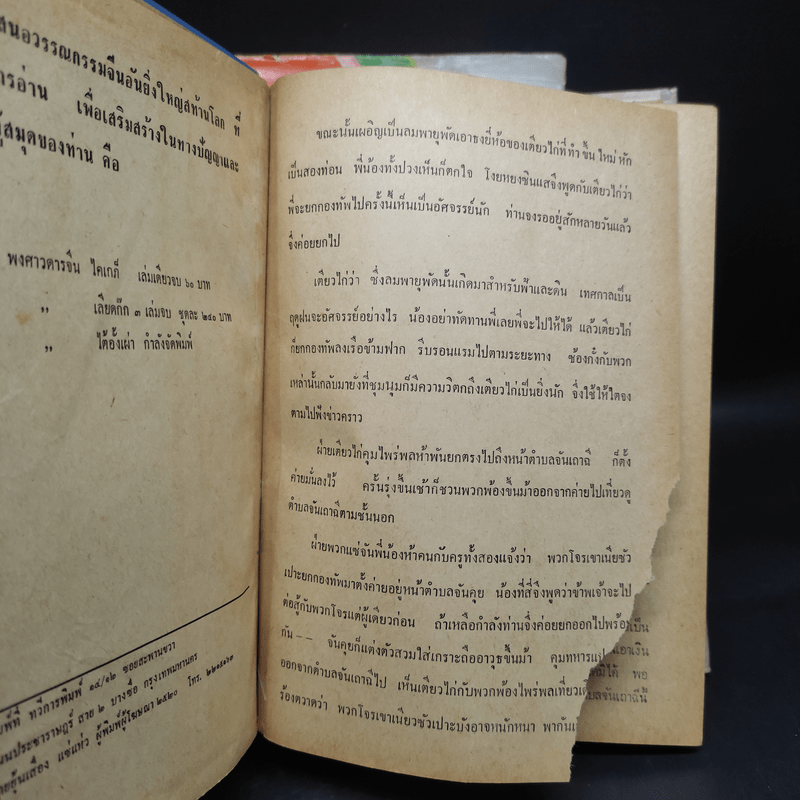 สนอวรรณกรรมจีนอันยิ่งใหญ่สท้านโลก ที่
การอ่าน เพื่อเสริมสร้างในทางปัญญาและ
สมุดของท่าน คือ
พงศาวดารจีน ไคเภ็ก เล่มเดียวจบ ๖๐ บาท
,, เลียดก๊ก ๓ เล่มจบ ชุดละ ๒๔๐ บาท
,, ไต้อั้งเผ่า กำลังจัดพิมพ์
พิมพ์ที่ ทวีการพิมพ์ ๑๔/๑๒ ซอยสะพานขวา
ถนนประชาราษฎร์ สาย ๒ บางซื่อ กรุงเทพมหานคร
แซ่แห่ว ผู้พิมพ์ผู้โฆษณา ๒๕๒๐ โทร.
ขณะนั้นเผอิญเป็นลมพายุพัดเอาธงยี่ห้อของเตียวไก่ที่ทำขึ้นใหม่หัก
เป็นสองท่อน พี่น้องทั้งปวงเห็นก็ตกใจ โงยหยงซินแสจึงพูดกับเตียวไก่ว่า
พี่จะยกกองทัพไปครั้งนี้เห็นเป็นอัศจรรย์นัก ท่านจงรออยู่สักหลายวันแล้ว
จึงค่อยยกไป
เตียวไก่ว่า ซึ่งลมพายุพัดนั้นเกิดมาสำหรับฟ้าและดิน เทศกาลเป็น
ฤดูฝนจะอัศจรรย์อย่างไร น้องอย่าทัดทานพี่เลยพี่จะไปให้ได้ แล้วเตียวไก่
ก็ยกกองทัพลงเรือข้ามฟาก รีบรอนแรมไปตามระยะทาง ซ้องกั๋งกับพวก
เหล่านั้นกลับมายังที่ชุมนุมก็มีความวิตกถึงเตียวไก่เป็นยิ่งนัก จึงใช้ให้ไตจง
ตามไปฟังข่าวคราว
ฝ่ายเตียวไก่คุมไพร่พลห้าพันยกตรงไปถึงหน้าตำบลจันเถาฉี ก็ตั้ง
ค่ายมั่นลงไว้ ครั้นรุ่งขึ้นเช้าก็ชวนพวกพ้องขึ้นม้าออกจากค่ายไปเที่ยวดู
ตำบลจันเถาฉีตามชั้นนอก
ฝ่ายพวกแซ่จันพี่น้องห้าคนกับครูทั้งสองแจ้งว่า พวกโจรเขาเนียซัว
เปาะยกกองทัพมาตั้งค่ายอยู่หน้าตำบลจันคุย น้องที่สี่จึงพูดว่าข้าพเจ้าจะไป
ต่อสู้กับพวกโจรแต่ผู้เดียวก่อน ถ้าเหลือกำลังท่านจึงค่อยยกออกไปพร้อม
กัน -- จันคุยก็แต่งตัวสวมใส่เกราะถืออาวุธขึ้นม้า คุมทหาร
ออกจากตำบลจันเถาฉีไป เห็นเตียวไก่กับพวกพ้องไพร่พลเที่ยว
ร้องตวาดว่า พวกโจรเขาเนียวซัวเปาะบังอาจหนักหนา พากัน
เป็น
เอาเงิน
ได้ พอ
ตำบลจันเถาฉีนี้